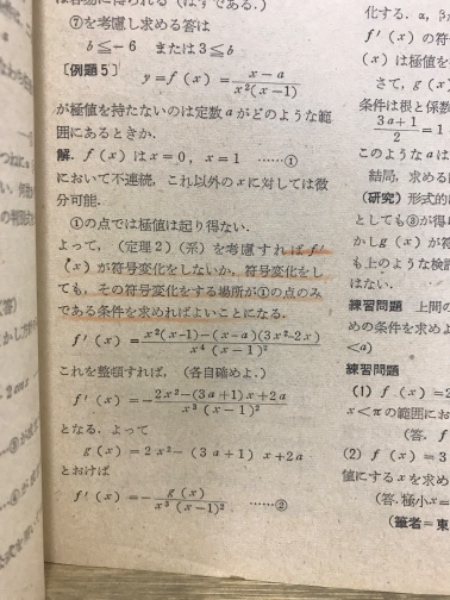 ⑦を考慮し求める答は
b≦-6 または3≦b
〔例題5〕 y=f(x)=x-a/x²(x-1)
が極値を持たないのは定数aがどのような範
囲にあるときか.
解. f(x)はx=0, x=1 ……①
において不連続, これ以外のxに対しては微
分可能.
①の点では極値は起り得ない.
よって, (定理2)(系)を考慮すればf′
(x)が符号変化をしないか, 符号変化をし
ても, その符号変化をする場所が①の点のみ
である条件を求めればよいことになる.
f′(x)=x²(x-1)-(x-a)(3x²-2x)/x⁴(x-1)²
これを整頓すれば, (各自確めよ.)
f′(x)=-2x²-(3a+1)x+2a/x³(x-1)²
となる. よって
g(x)=2x²-(3a+1)x+2a
とおけば
f′(x)=-g(x)/x³(x-1)² ……②
化する. α, β
f′(x)の符
(x)は極値を
さて, g(x)
条件は根と係数
3a+1/2=1
このようなaは
結局, 求める
(研究) 形式的
としても③が得
かしg(x)が符
も上のような検
はない.
練習問題 上間の
めの条件を求めよ
<a)
練習問題
(1) f(x)=2
x<πの範囲にお
(答. f
(2) f(x)=3
値にするxを求め
(答. 極小x=
(筆者=東